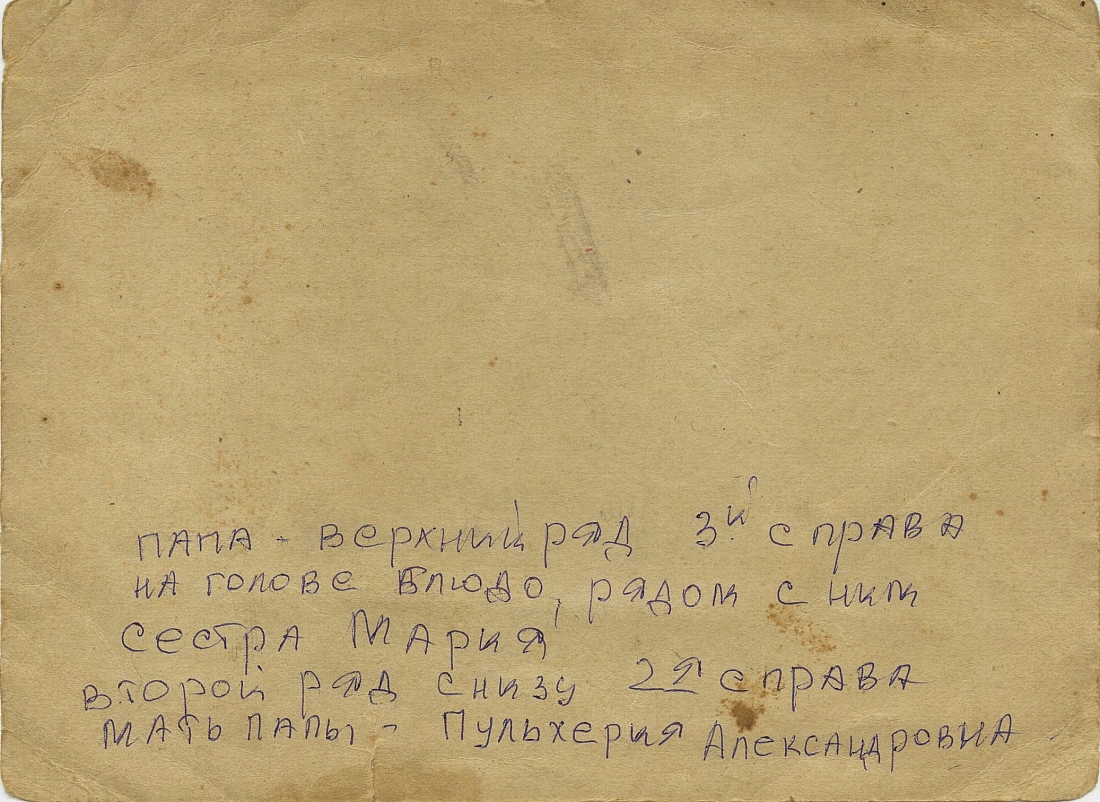 ПАПА - верхний ряд 3й справа
на голове блюдо, рядом с ним
сестра Мария
второй ряд снизу 2я справа
мать папы - Пульхерия Александровна